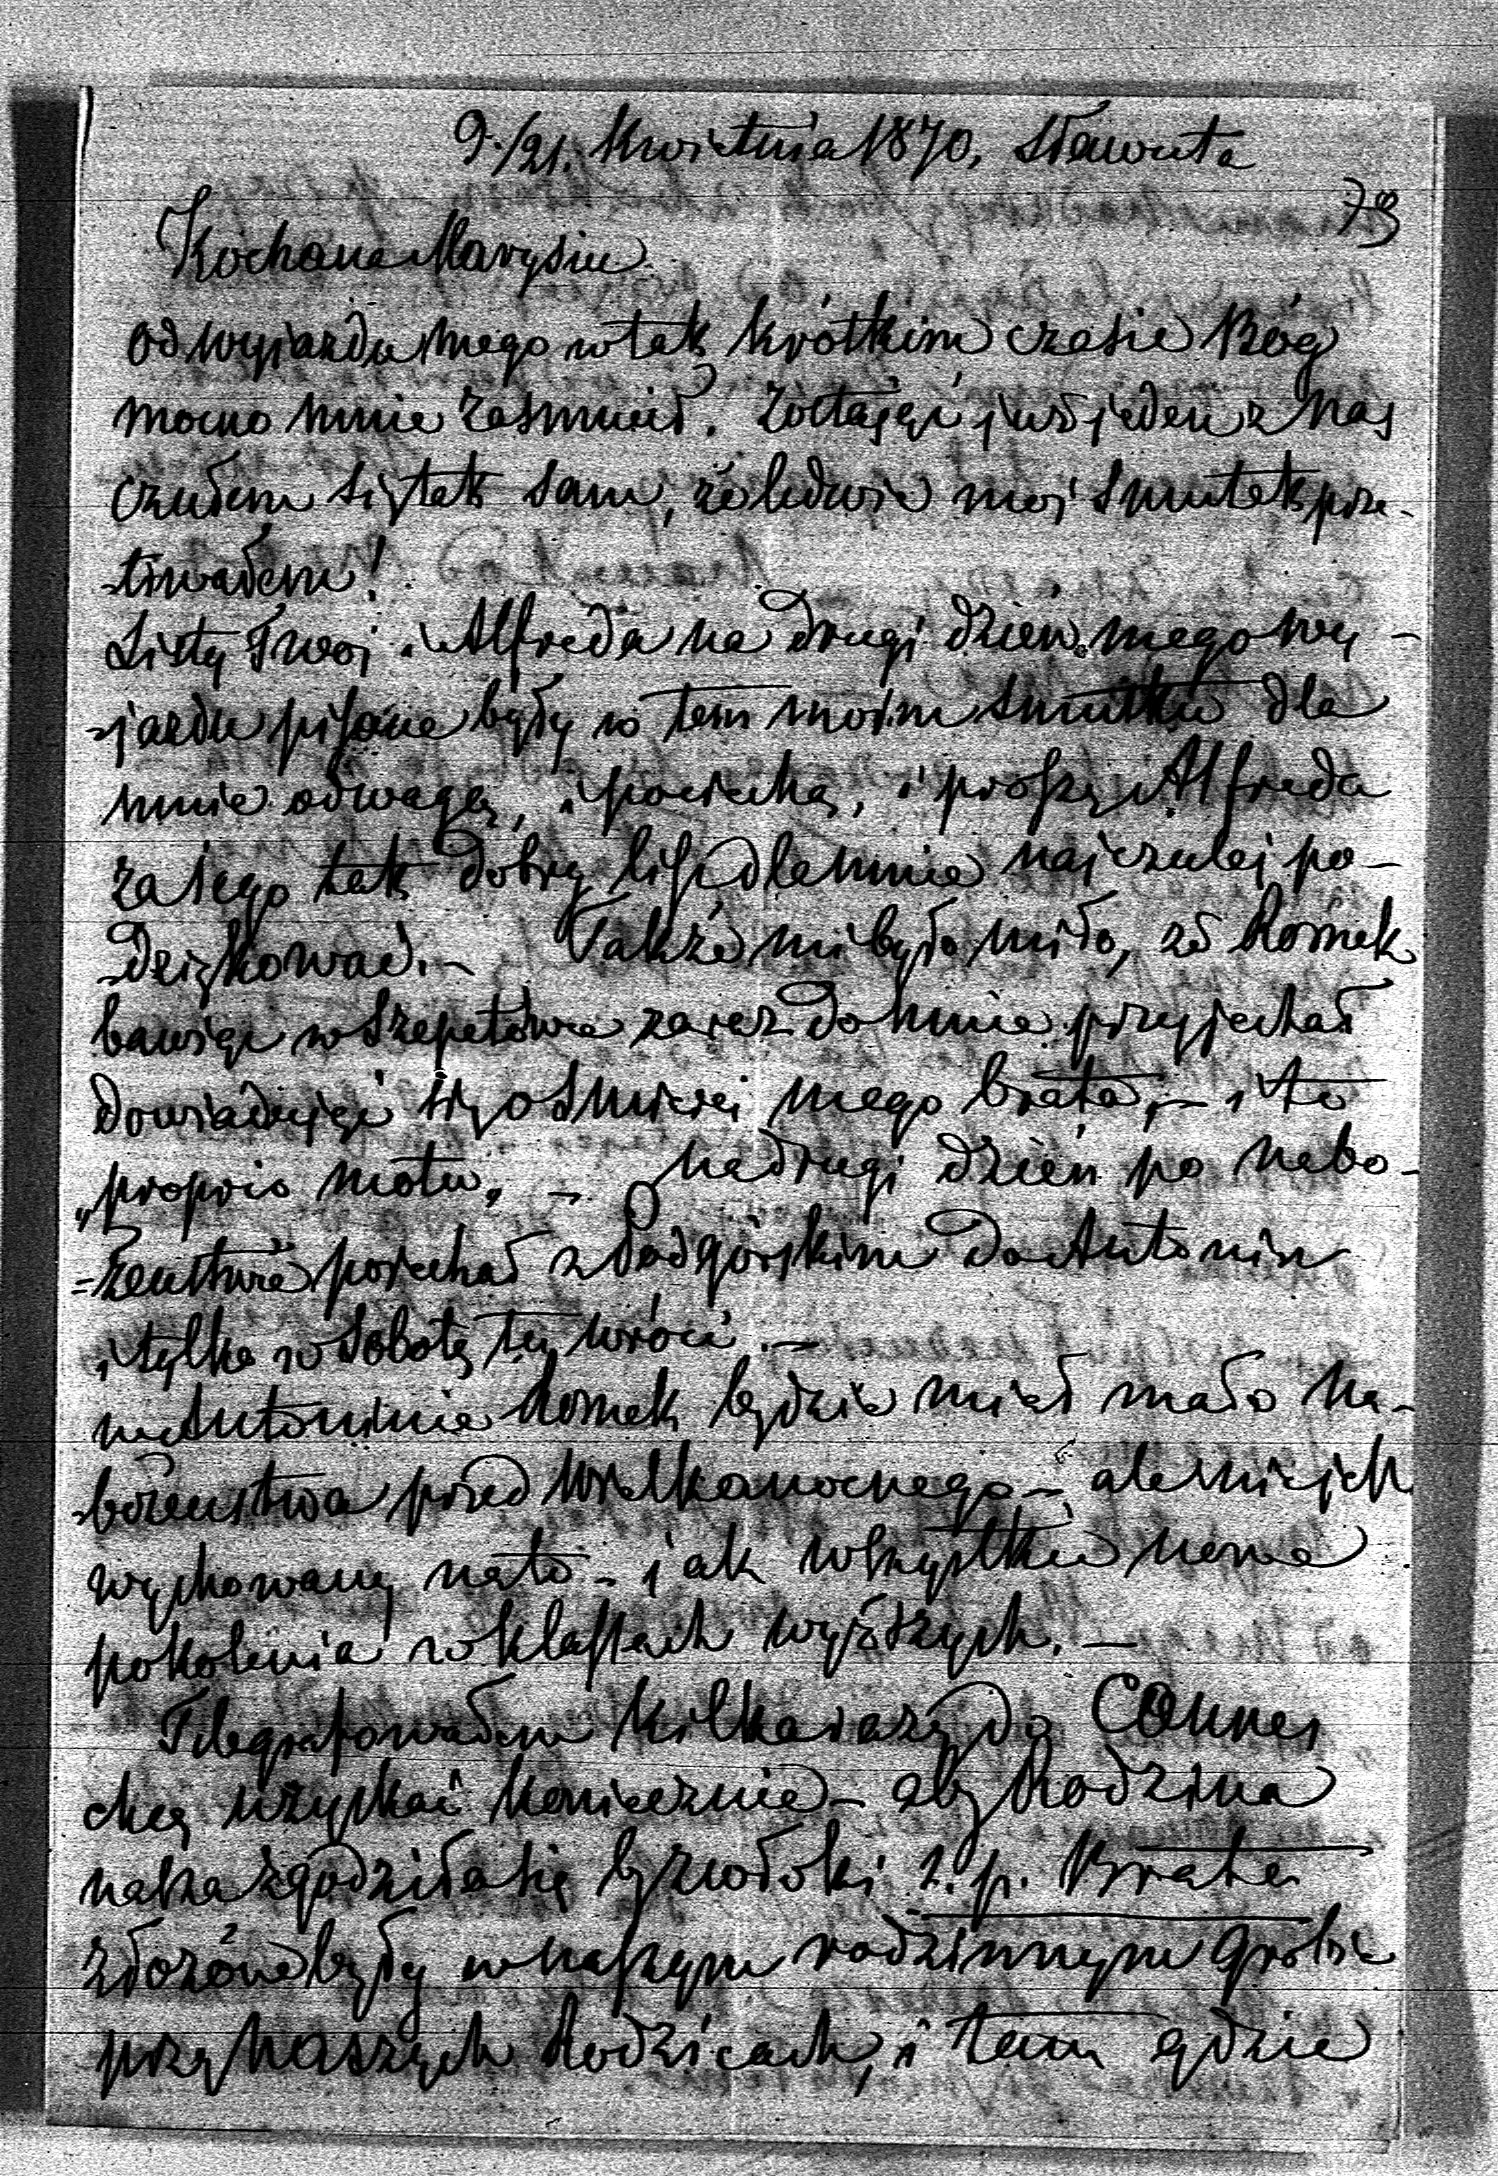 9./21. Kwietnia 1870, Sławuta
73
Kochana Marysiu
od wyjazdu mego w tak krótkim czasie Bóg
mocno mnie zasmucił. Zostając już jeden z nas
czułem się tak sam, że ledwie moj smutek prze-
-trwałem!
Listy Twoj i Alfreda na drugi dzień mego wy-
-jazdu pisane były w tem moim smutku dla
mnie odwagą, i pociechą, i proszę Alfreda
za jego tak dobry list dla mnie najczulej po-
-dziękować. – Także mi było miło, że Romek
bawiąc w Szepetówce zaraz do mnie przyjechał
dowiadując się o śmierci mego brata, – i to
„proprio motu, – na drugi dzień po nabo-
=żeństwie pojechał z Podgórskim do Antonin
i tylko w Sobotę tu wróci. –
w Antoninie Romek będzie miał mało na-
-bożeństwa przed Wielkanocnego, – ale nie jest
wychowany na to – jak wszystkie nowe
pokolenia w klassach wyższych. –
Telegrafowałem kilka razy do Cannes
chcę uzyskać koniecznie – aby Rodzina
nasza zgodziła się by zwłoki ś. p. Brata
złożone były w naszym rodzinnym grobie
przy naszych Rodzicach, i tam gdzie